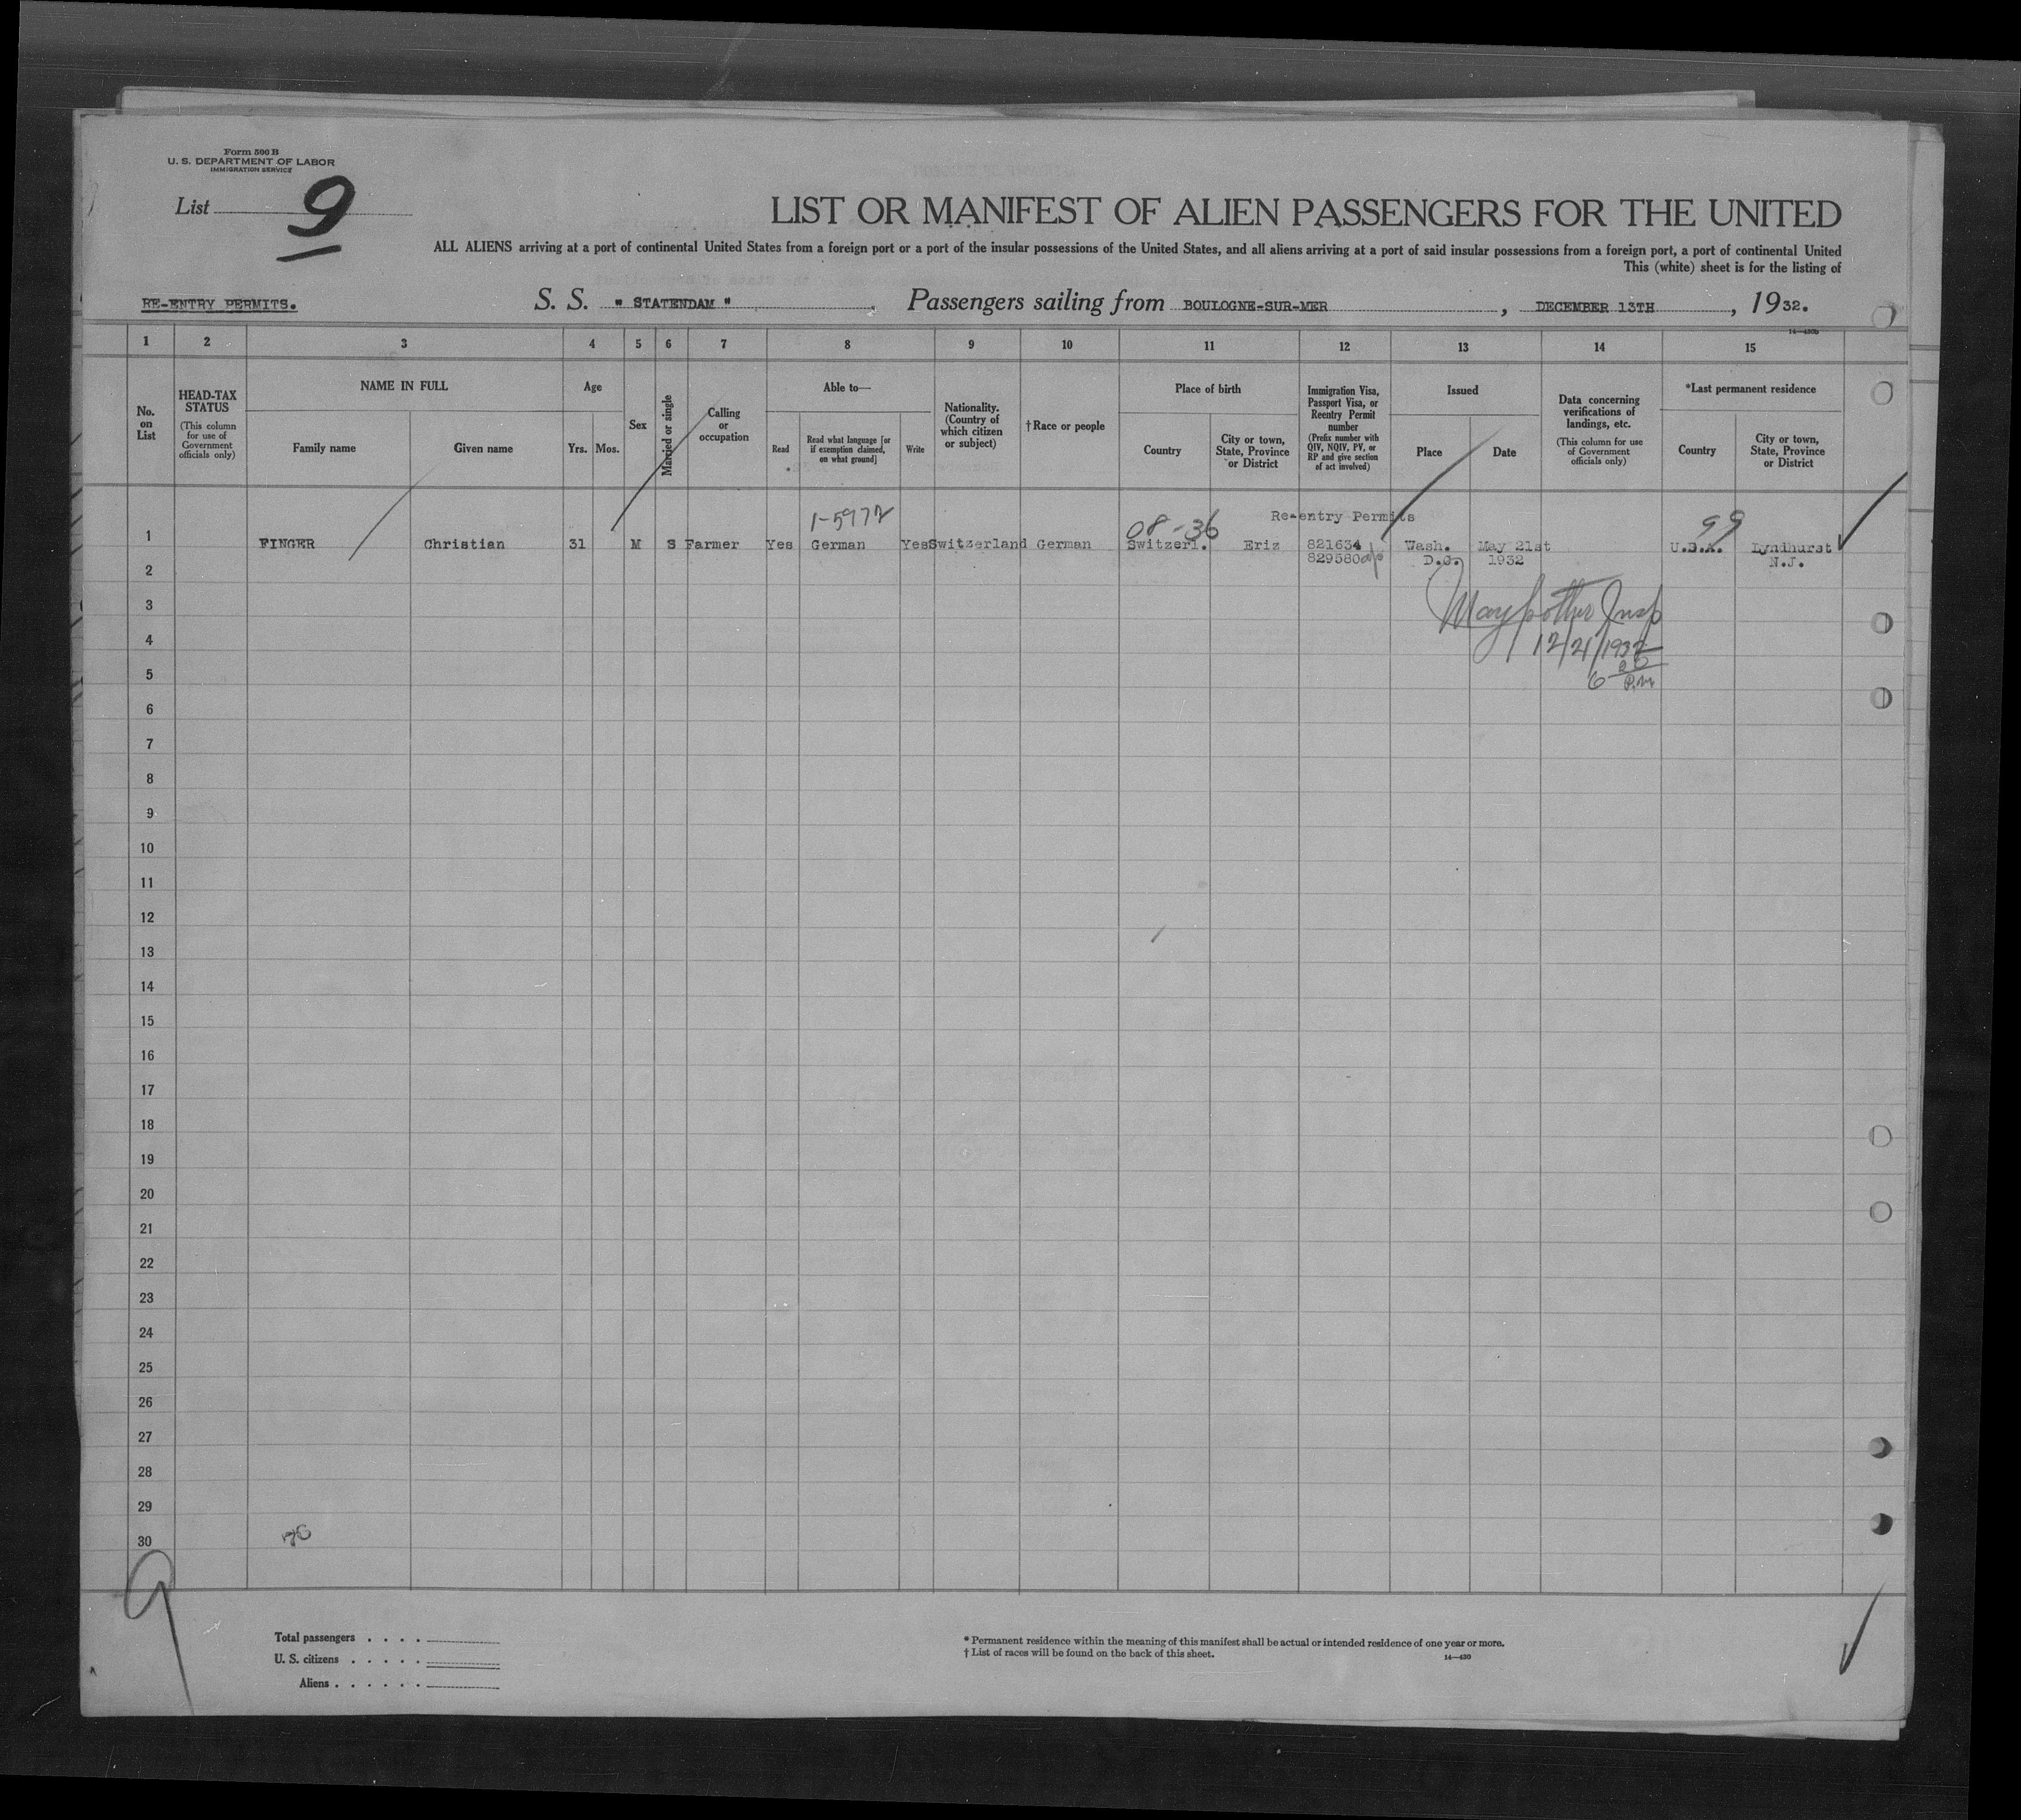 Form 500 B
U. S. DEPARTMENT OF LABOR
IMMIGRATION SERVICE
List 9
LIST OR MANIFEST OF ALIEN PASSENGERS FOR THE UNITED
ALL ALIENS arriving at a port of continental United States from a foreign port or a port of the insular possessions of the United States, and all aliens arriving at a port of said insular possessions from a foreign port, a port of continental United
This (white) sheet is for the listing of
RE-ENTRY PERMITS. S. S. " STATENDAM ", Passengers sailing from BOULOGNE-SUR-MER, DECEMBER 13TH, 1932.
14—430b
1 2 3 4 5 6 7 8 9 10 11 12 13 14 15
No. on List
HEAD-TAX STATUS (This column for use of Government officials only)
NAME IN FULL
Family name Given name
Age
Yrs. Mos.
Sex
Married or single
Calling or occupation
Able to—
Read
Read what language [or if exemption claimed, on what ground]
Write
Nationality. (Country of which citizen or subject)
†Race or people
Place of birth
Country
City or town, State, Province or District
Immigration Visa, Passport Visa, or Reentry Permit number (Prefix number with QIV, NQIV, PV, or RP and give section of act involved)
Issued
Place Date
Data concerning verifications of landings, etc. (This column for use of Government officials only)
*Last permanent residence
Country
City or town, State, Province or District
1-5972 08-36 Re-entry Permits 99
1 FINGER Christian 31 M S Farmer Yes German Yes Switzerland German Switzerl. Eriz 821634 Wash. May 21st U.S.A. Lyndhurst
829580 D.C. 1932 N.J.
2
3
Insp
4
12/21/1932
5
6 P.M.
6
7
8
9
10
11
12
13
14
15
16
17
18
19
20
21
22
23
24
25
26
27
28
29
30
9
Total passengers . . . .
U. S. citizens . . . . .
Aliens . . . . . .
* Permanent residence within the meaning of this manifest shall be actual or intended residence of one year or more.
† List of races will be found on the back of this sheet.
14—430